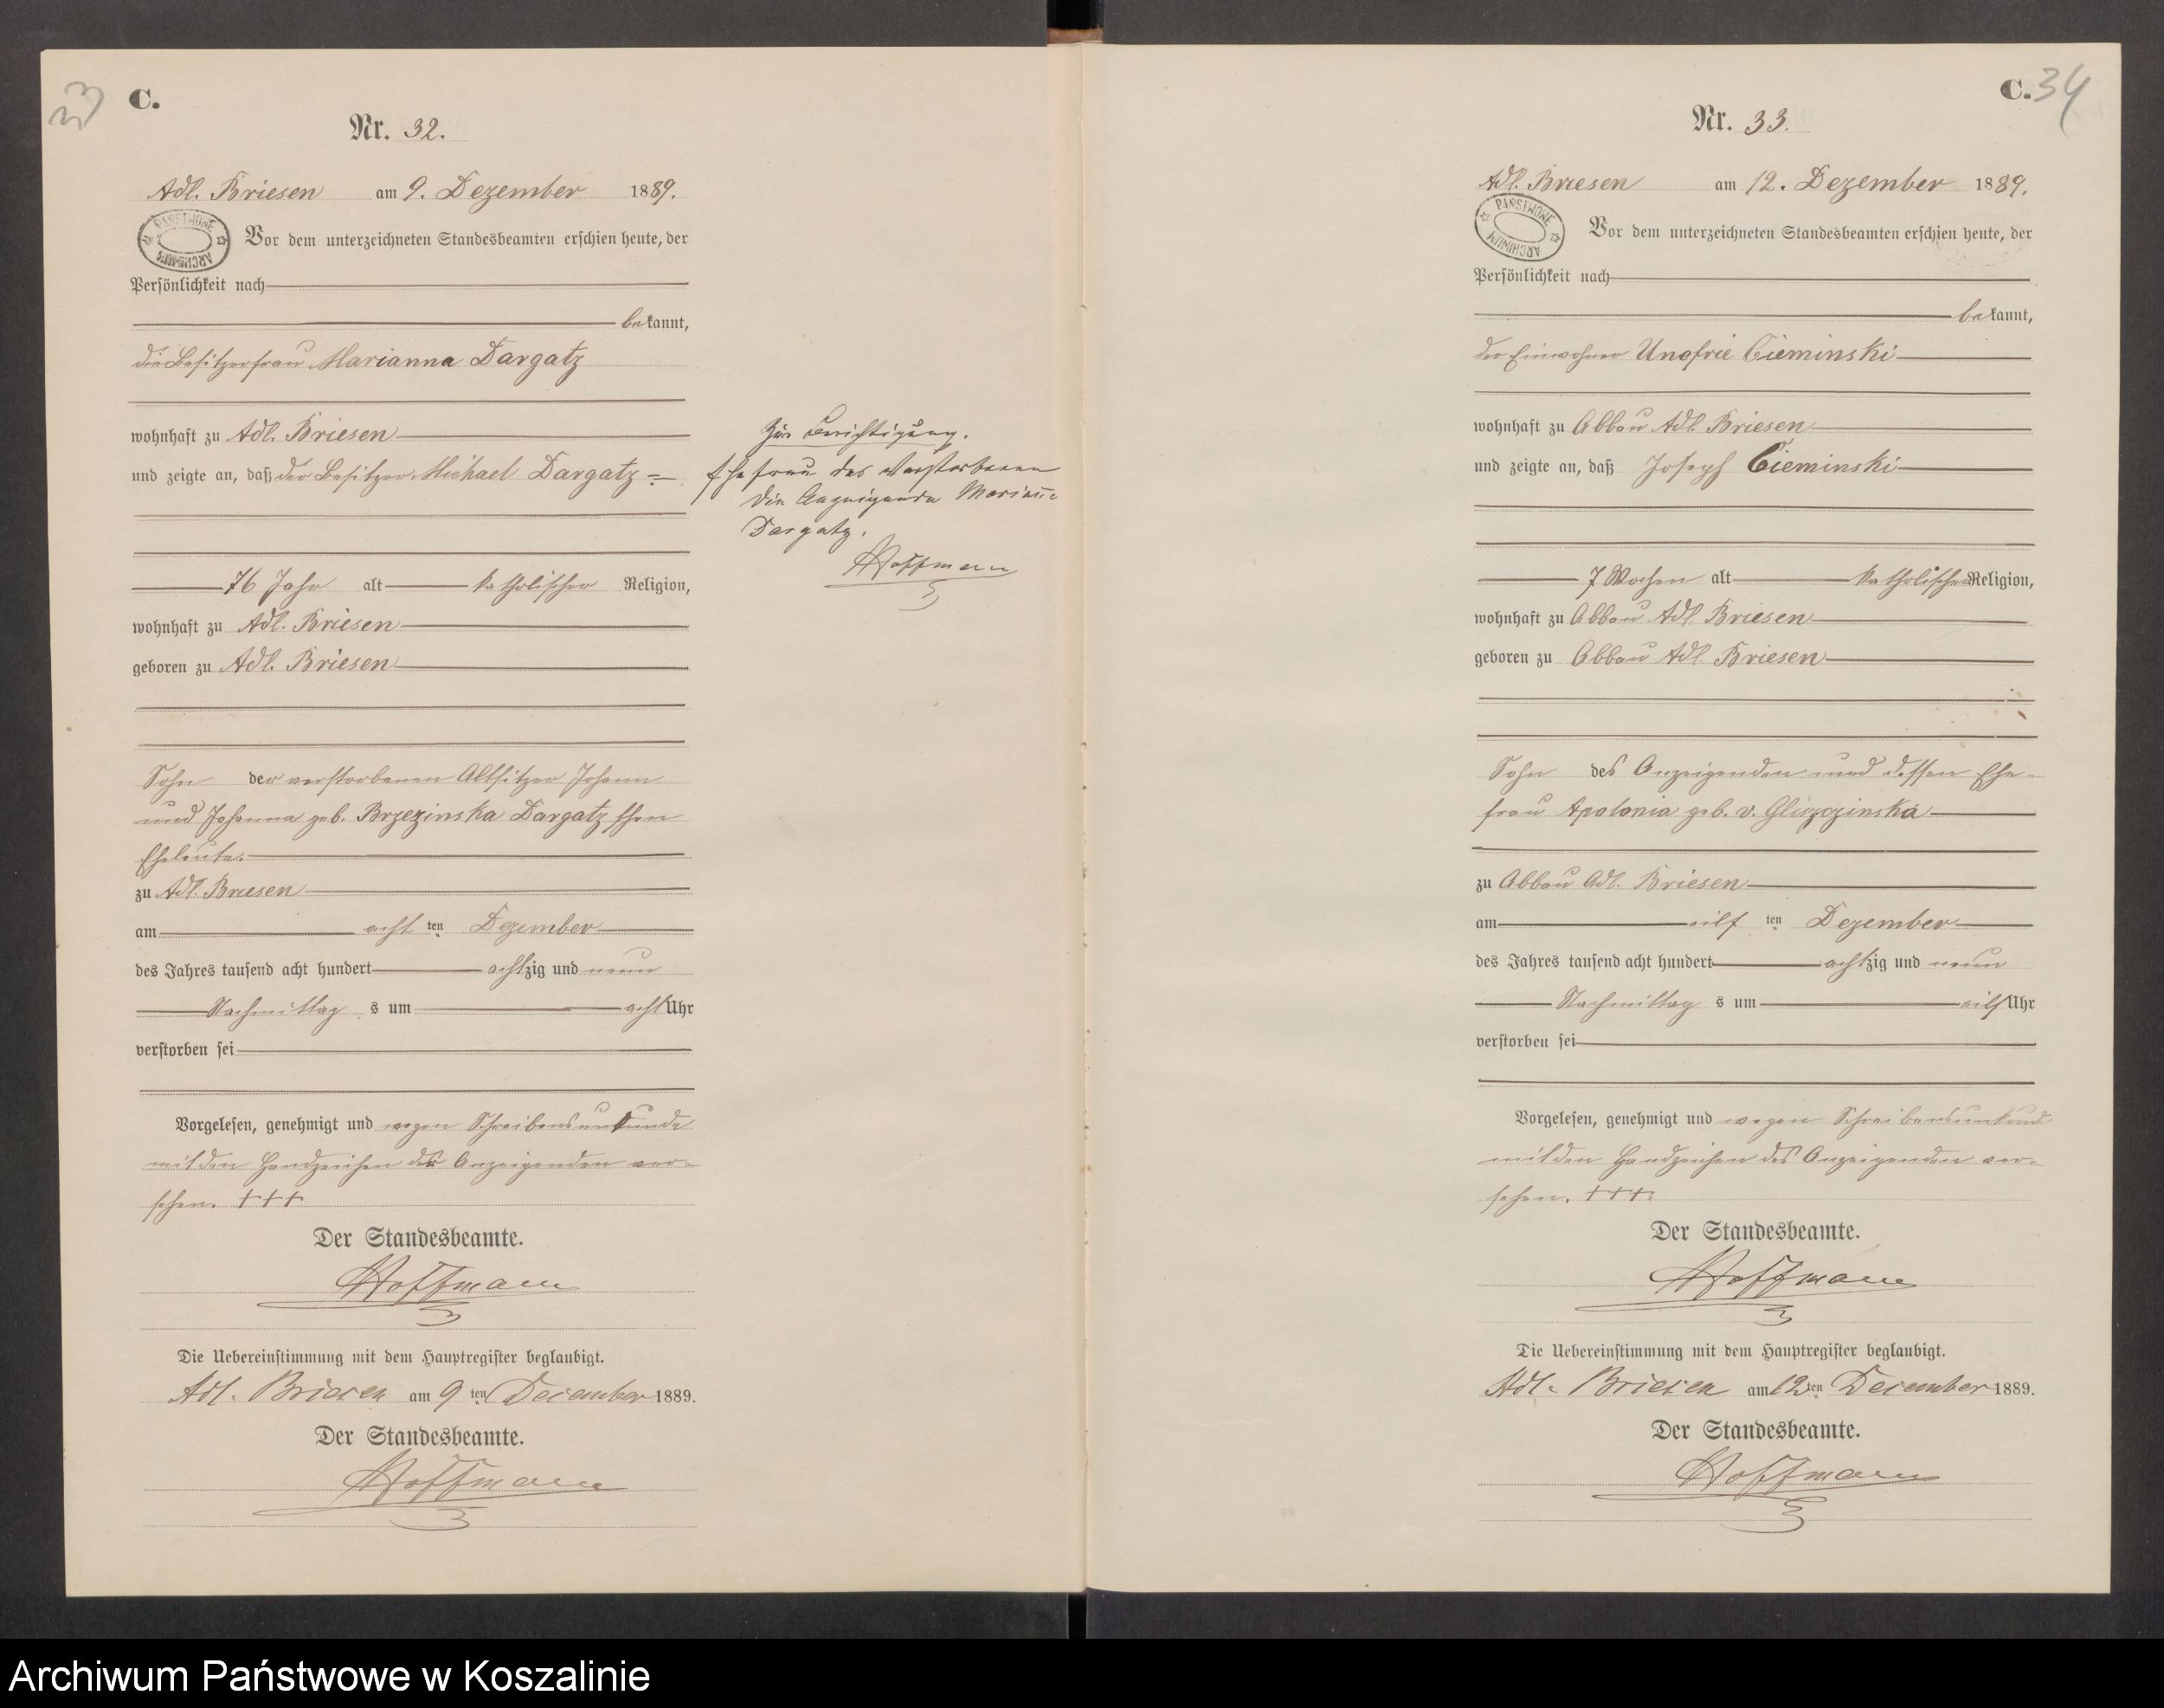 C.
Nr. 32.
Adl. Briesen am 9. Dezember 1889.
PAŃSTWOWE ARCHIWUM
Vor dem unterzeichneten Standesbeamten erschien heute, der
Persönlichkeit nach
bekannt,
die Besitzerfrau Marianna Dargatz
wohnhaft zu Adl. Briesen
und zeigte an, daß der Besitzer Michael Dargatz
76 Jahr alt katholischer Religion,
wohnhaft zu Adl. Briesen
geboren zu Adl. Briesen
Sohn der verstorbenen Altsitzer Johann
und Johanna geb. Brzezinska Dargatz'schen
Eheleute.
zu Adl. Briesen
am acht ten Dezember
des Jahres tausend acht hundert achtzig und neun
Nachmittag s um acht Uhr
verstorben sei
Vorgelesen, genehmigt und wegen Schreibensunkunde
mit den Handzeichen der Anzeigenden ver-
sehen. +++
Der Standesbeamte.
Hoffmann
Die Uebereinstimmung mit dem Hauptregister beglaubigt.
Adl. Briesen am 9 ten December 1889.
Der Standesbeamte.
Hoffmann
Zur Berichtigung.
Ehefrau des Verstorbenen
die Anzeigende Marianna
Dargatz.
Hoffmann
C. 34
Nr. 33.
Adl. Briesen am 12. Dezember 1889.
PAŃSTWOWE ARCHIWUM
Vor dem unterzeichneten Standesbeamten erschien heute, der
Persönlichkeit nach
bekannt,
der Einwohner Unofrie Cieminski
wohnhaft zu Abbau Adl. Briesen
und zeigte an, daß Joseph Cieminski
7 Wochen alt katholischer Religion,
wohnhaft zu Abbau Adl. Briesen
geboren zu Abbau Adl. Briesen
Sohn des Anzeigenden und dessen Ehe-
frau Apolonia geb. v. Gliszczinska
zu Abbau Adl. Briesen
am eilf ten Dezember
des Jahres tausend acht hundert achtzig und neun
Nachmittag s um eilf Uhr
verstorben sei
Vorgelesen, genehmigt und wegen Schreibensunkund
mit den Handzeichen des Anzeigenden ver-
sehen. +++
Der Standesbeamte.
Hoffmann
Die Uebereinstimmung mit dem Hauptregister beglaubigt.
Adl. Briesen am 12 ten December 1889.
Der Standesbeamte.
Hoffmann
Archiwum Państwowe w Koszalinie